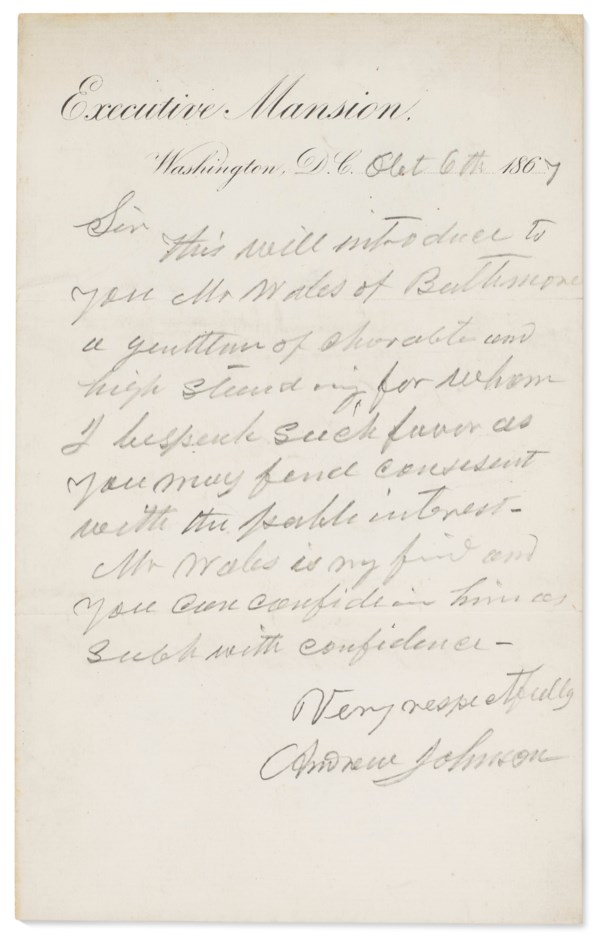 Executive Mansion.
Washington, D.C. Oct 6th 1867
Sir
This will introduce to
you Mr Wales of Balthmore
a gentleman of charate and
high standing for whom
I bespeak such favor as
you may find consisent
with the public interest–
Mr Wales is my frind and
you can confide in him as
such with confidence–
Very respectfully
Andrew Johnson